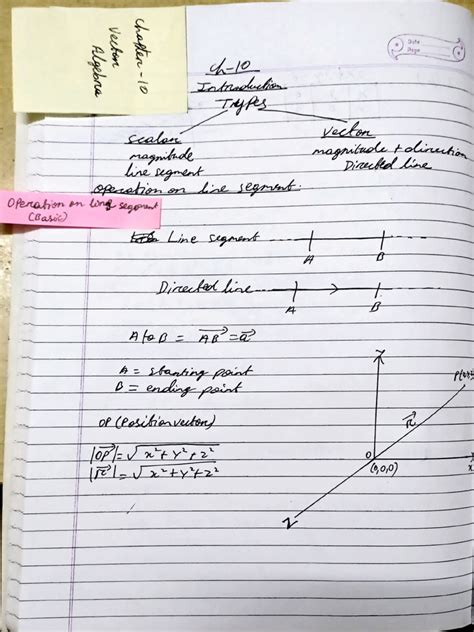 Chapter-10
Vector
Algebra
Date
Page
Ch-10
Introduction
Types
Scalar
magnitude
line segment
Vector
magnitude + direction
Directed line
operation on line segment:
Operation on line segment
(Basic)
Line segment
A B
Directed line
A B
A to B = AB⃗ = a⃗
A = starting point
B = ending point
OP (Position vector)
|OP⃗| = √x²+y²+z²
|r⃗| = √x²+y²+z²
Y
r⃗
O
(0,0,0)
X
Z